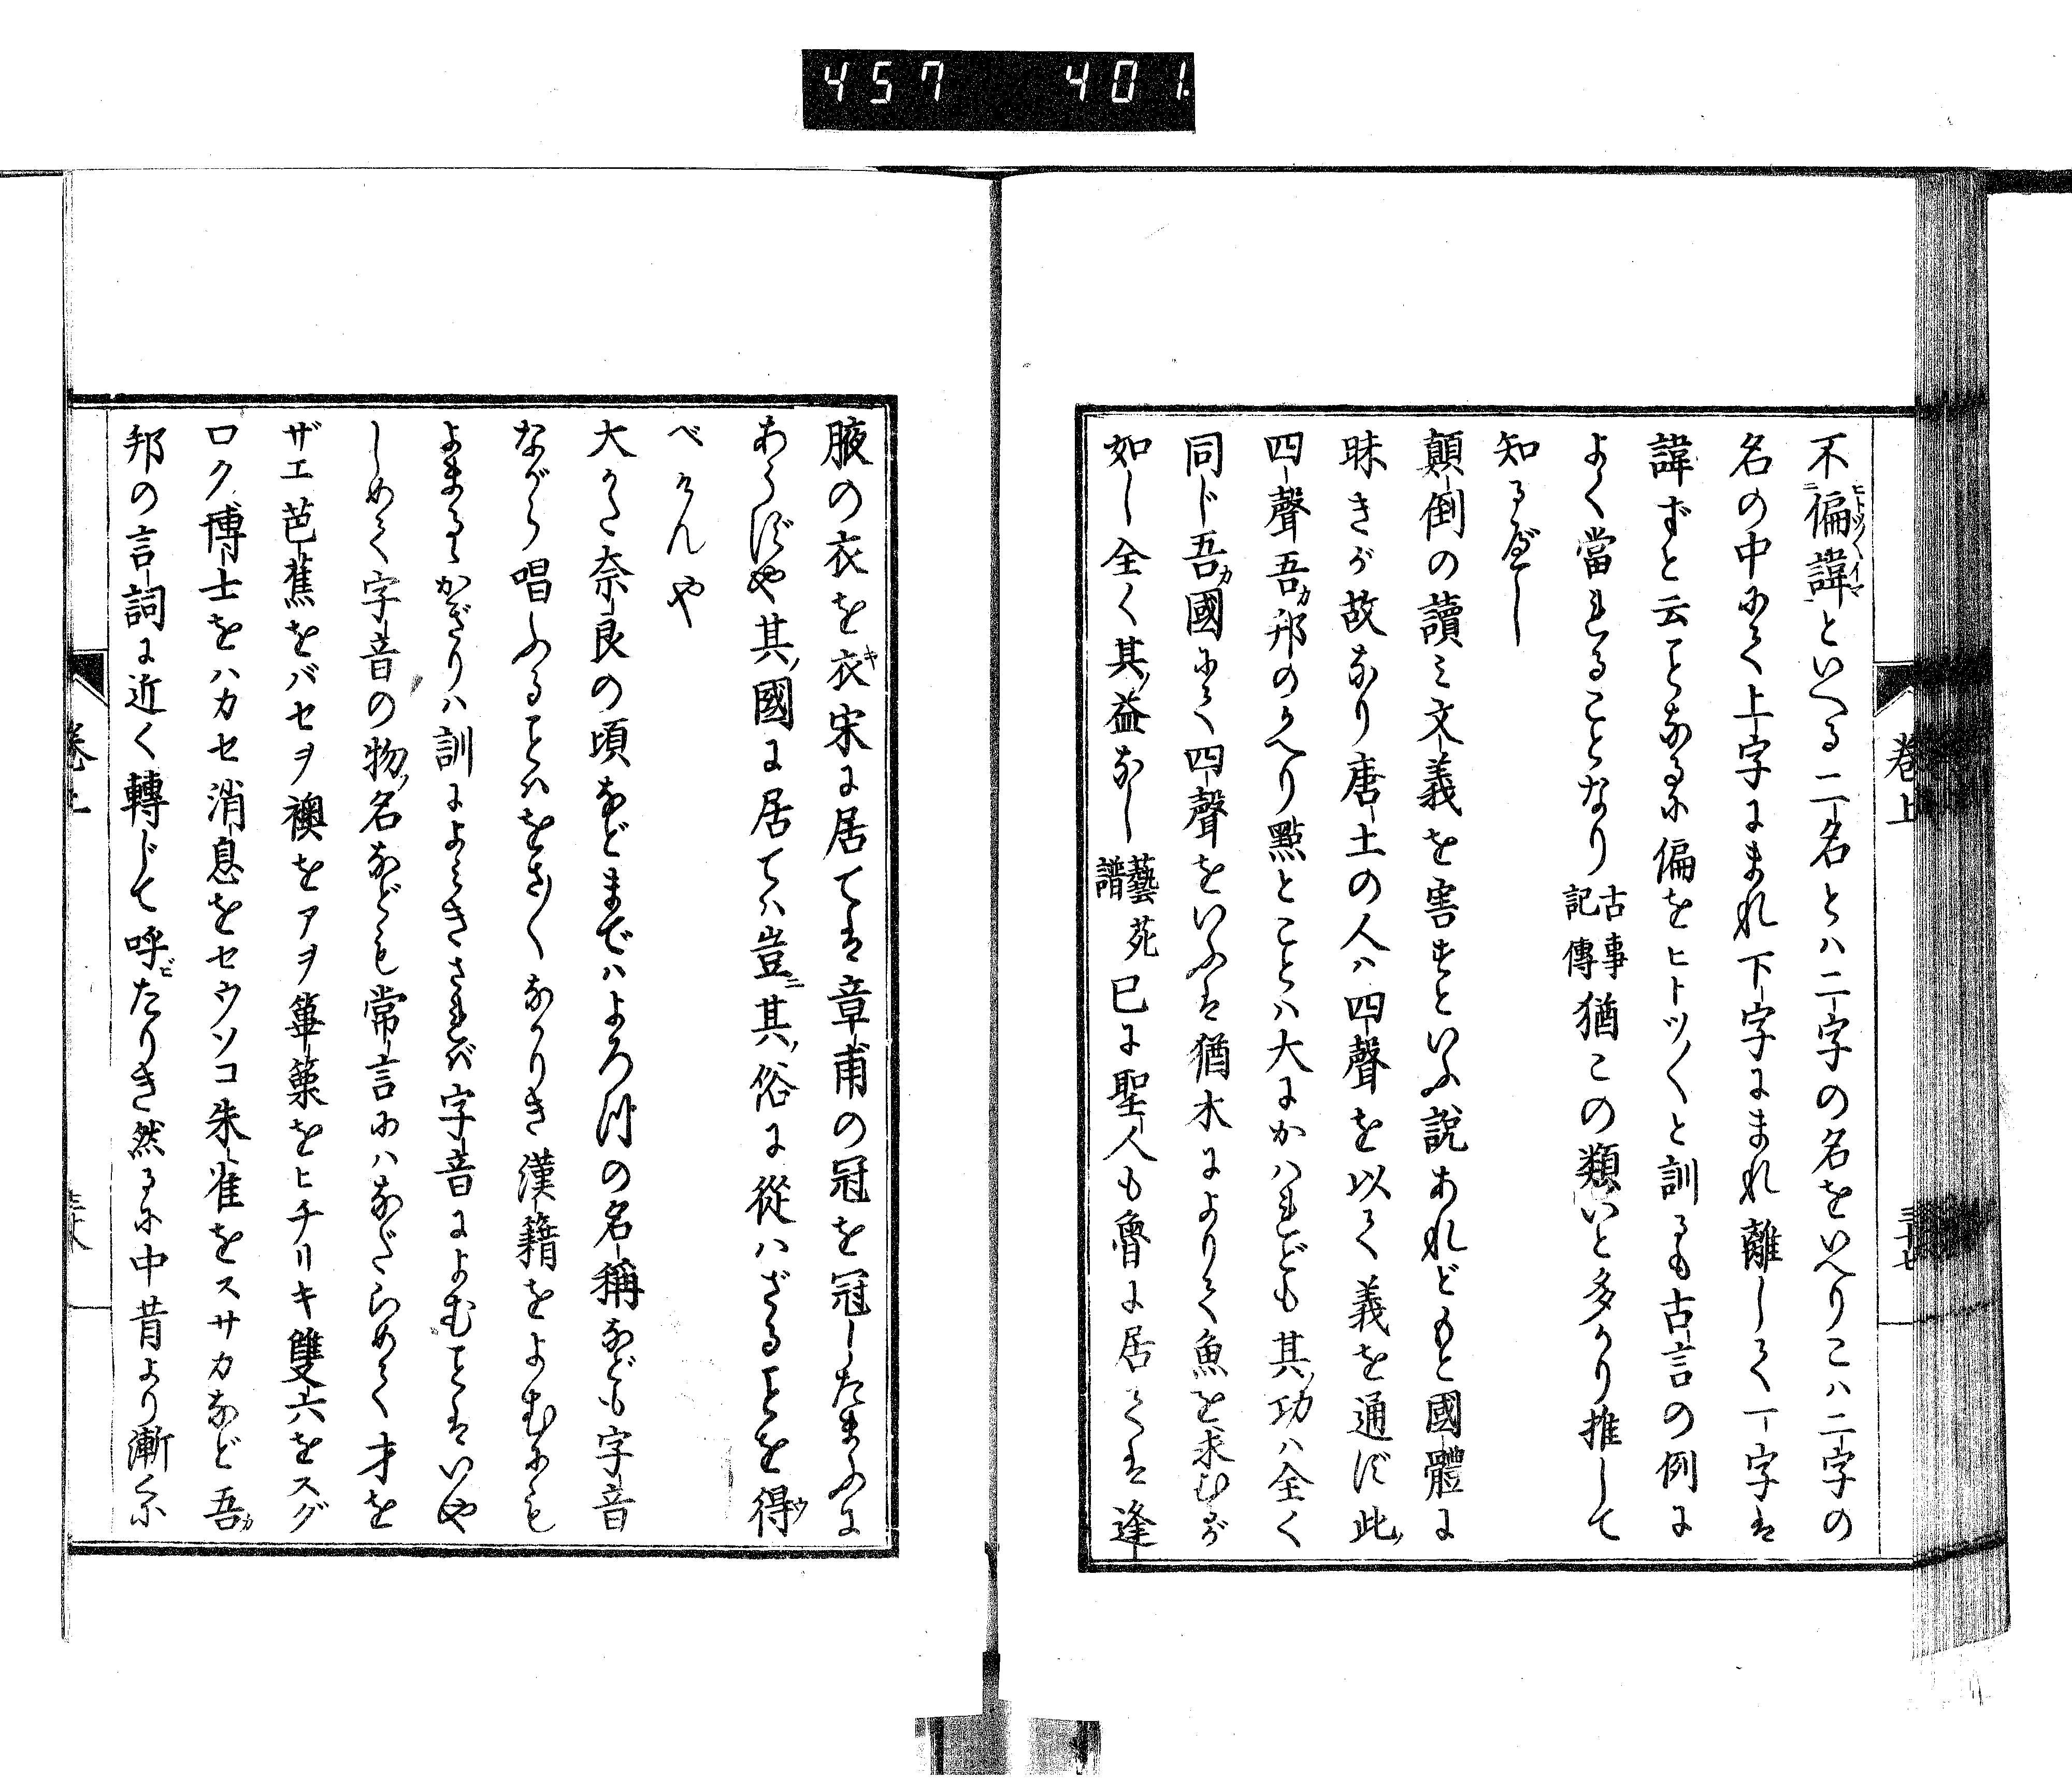 457 401
不偏諱といへる二名とハ二字の名をいへりこハ二字の
名の中にて上字にまれ下字にまれ離して一字は
諱ずと云ことなるに偏をヒトツ〱と訓るも古言の例に
よく當れることなり古事記傳猶この類いと多かり推して
知るべし
顛倒の讀ミ文義を害すといふ説あれどもと國體に
昧きが故なり唐土の人ハ四聲を以て義を通ず此
四聲吾邦のかへり點とことハ大にかハれども其功ハ全く
同じ吾國にて四聲をいふは猶木によりて魚を求むが
如し全く其益なし藝苑譜已に聖人も魯に居ては逢
巻上
腋の衣を衣宋に居ては章甫の冠を冠したまふに
あらずや其國に居てハ豈其俗に從ハざることを得
べけんや
大かた奈良の頃などまでハよろづの名稱なども字音
ながら唱ふることハをさ〱なかりき漢籍をよむにも
よまるゝかぎりハ訓によみきされば字音によむことはいや
しめて字音の物名なども常言にハなだらめて才を
ザエ芭蕉をバセヲ襖をアヲ篳篥をヒチリキ雙六をスグ
ロク博士をハカセ消息をセウソコ朱雀をスサカなど吾
邦の言詞に近く轉じて呼たりき然るに中昔より漸〱に